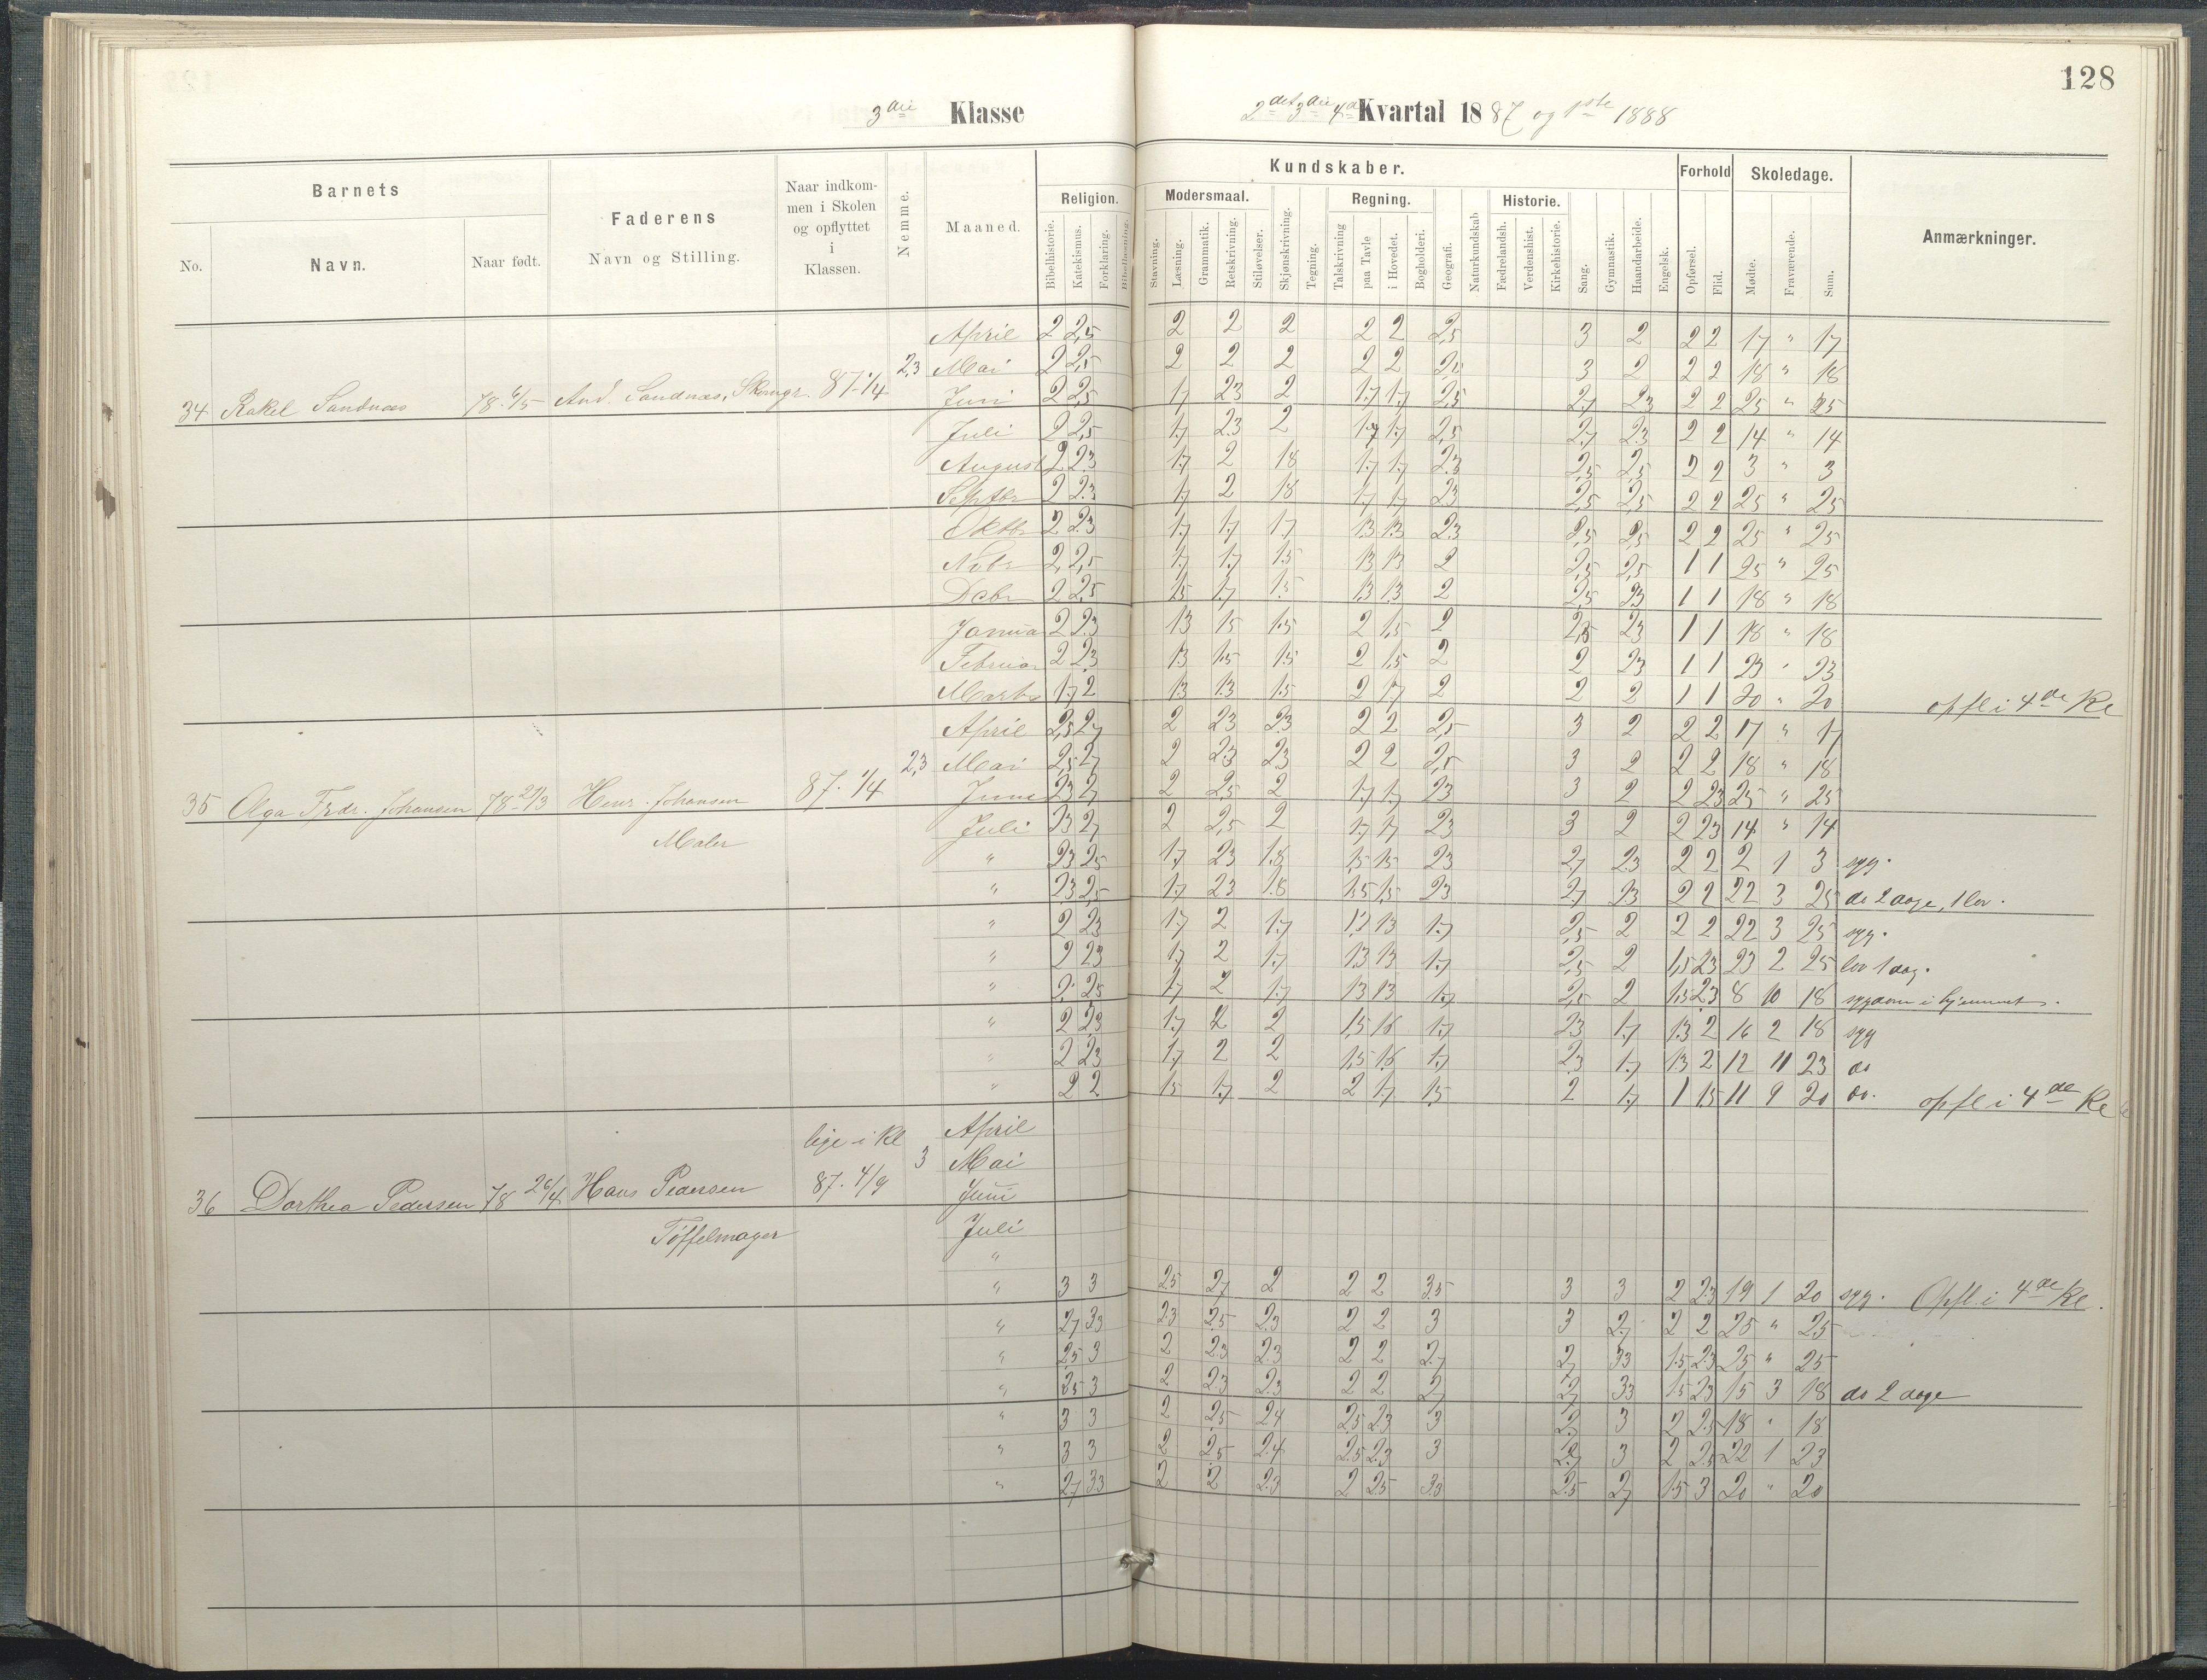 128
3die Klasse
2det 3die 4de Kvartal 1887 og 1ste 1888
Barnets
Faderens
Navn og Stilling.
Naar indkom-
men i Skolen
og opflyttet
i
Klassen.
Nemme.
Maaned.
Kundskaber.
Forhold
Skoledage.
Anmærkninger.
Religion.
Modersmaal.
Regning.
Historie.
No.
Navn.
Naar født.
Bibelhistorie.
Katekismus.
Forklaring.
Bibellæsning.
Stavning.
Læsning.
Grammatik.
Retskrivning.
Stiløvelser.
Skjønskrivning.
Tegning.
Talskrivning
paa Tavle
i Hovedet.
Bogholderi.
Geografi.
Naturkundskab
Fædrelandsh.
Verdenshist.
Kirkehistorie.
Sang.
Gymnastik.
Haandarbeide.
Engelsk.
Opførsel.
Flid.
Mødte.
Fraværende.
Sum.
April 2 2,5 2 2 2 2 2 2,5 3 2 2 2 17 " 17
2,3 Mai 2 2,5 2 2 2 2 2 2,5 3 2 2 2 18 " 18
34 Rakel Sandnæs And. Sandnæs, 87-1/4 Juni 2 2,5 1.7 2.3 2 1.7 1.7 2,5 2.7 2.3 2 2 25 " 25
Juli 2 2,5 1.7 2.3 2 1.7 1.7 2,5 2.7 2.3 2 2 14 " 14
August 2 2.3 1.7 2 1.8 1.7 1.7 2.3 2,5 2,5 2 2 3 " 3
Septbr 2 2.3 1.7 2 1.8 1.7 1.7 2.3 2,5 2,5 2 2 25 " 25
Oktbr 2 2.3 1.7 1.7 1.7 1.3 1.3 2.3 2,5 2,5 2 2 25 " 25
Nvbr 2 2,5 1.7 1.7 1.5 1.3 1.3 2 2,5 2,5 1 1 25 " 25
Dcbr 2 2.5 1.5 1.7 1.5 1.3 1.3 2 2.5 2.3 1 1 18 " 18
Januar 2 2.3 1.3 1.5 1.5 2 1.5 2 2,5 2.3 1 1 18 " 18
Februar 2 2.3 1.3 1.5 1.5 2 1.5 2 2 2.3 1 1 23 " 23
Marts 1.7 2 1.3 1.3 1.5 2 1.7 2 2 2 1 1 20 " 20 opfl i 4de Kl
April 2,5 2.7 2 2.3 2.3 2 2 2,5 3 2 2 2 17 " 17
2,3 Mai 2,5 2.7 2 2.3 2.3 2 2 2,5 3 2 2 2 18 " 18
35 Olga Frdr. Johansen 78-27/3 Henr. Johansen 87. 1/4 Juni 2.3 2.7 2 2.5 2 1.7 1.7 2.3 3 2 2 2.3 25 " 25
Maler Juli 2.3 2.7 2 2,5 2 1.7 1.7 2.3 3 2 2 2.3 14 " 14
" 2.3 2.5 1.7 2.3 1.8 1.5 1.5 2.3 2.7 2.3 2 2 2 1 3 syg.
" 2.3 2.5 1.7 2.3 1.8 1.5 1.5 2.3 2.7 2.3 2 2 22 3 25 do 2 dage, 1 lov.
" 2 2.3 1.7 2 1.7 1.3 1.3 1.7 2,5 2 2 2 22 3 25 syg.
" 2 2.3 1.7 2 1.7 1.3 1.3 1.7 2,5 2 1,5 2.3 23 2 25 lov 1 dag.
" 2 2.5 1.7 2 1.7 1.3 1.3 1.7 2,5 2 1.5 2.3 8 10 18 sygdom i hjemmet.
" 2 2.3 1.7 2 2 1.5 1.6 1.7 2.3 1.7 1.3 2 16 2 18 syg
" 2 2.3 1.7 2 2 1.5 1.6 1.7 2.3 1.7 1.3 2 12 11 23 do
" 2 2 1.5 1.7 2 2 1.7 1.5 2 1.7 1 1.5 11 9 20 do. opfl i 4de Kl
lige i Kl April
3 Mai
36 Dorthea Pedersen 78 26/4 Hans Pedersen 87. 4/9 Juni
Tøffelmager Juli
"
" 3 3 2.5 2.7 2 2 2 3.5 3 3 2 2.3 19 1 20 syg. Opfl. i 4de Kl.
" 2.7 3.3 2.3 2.5 2.3 2 2 3 3 2.7 2 2 25 " 25
" 2.5 3 2 2.3 2.3 2 2 2.7 2.7 3.3 1.5 2.3 25 " 25
" 2.5 3 2 2.3 2.3 2 2 2.7 2.7 3.3 1.5 2.3 15 3 18 do 2 dage
" 3 3 2 2.5 2.4 2.5 2.3 3 2.3 3 2 2.5 18 " 18
" 3 3 2 2.5 2.4 2.5 2.3 3 3 2 2.5 22 1 23
" 2.7 3.3 2 2 2.3 2 2.5 3.3 2.5 2.7 1.5 3 20 " 20